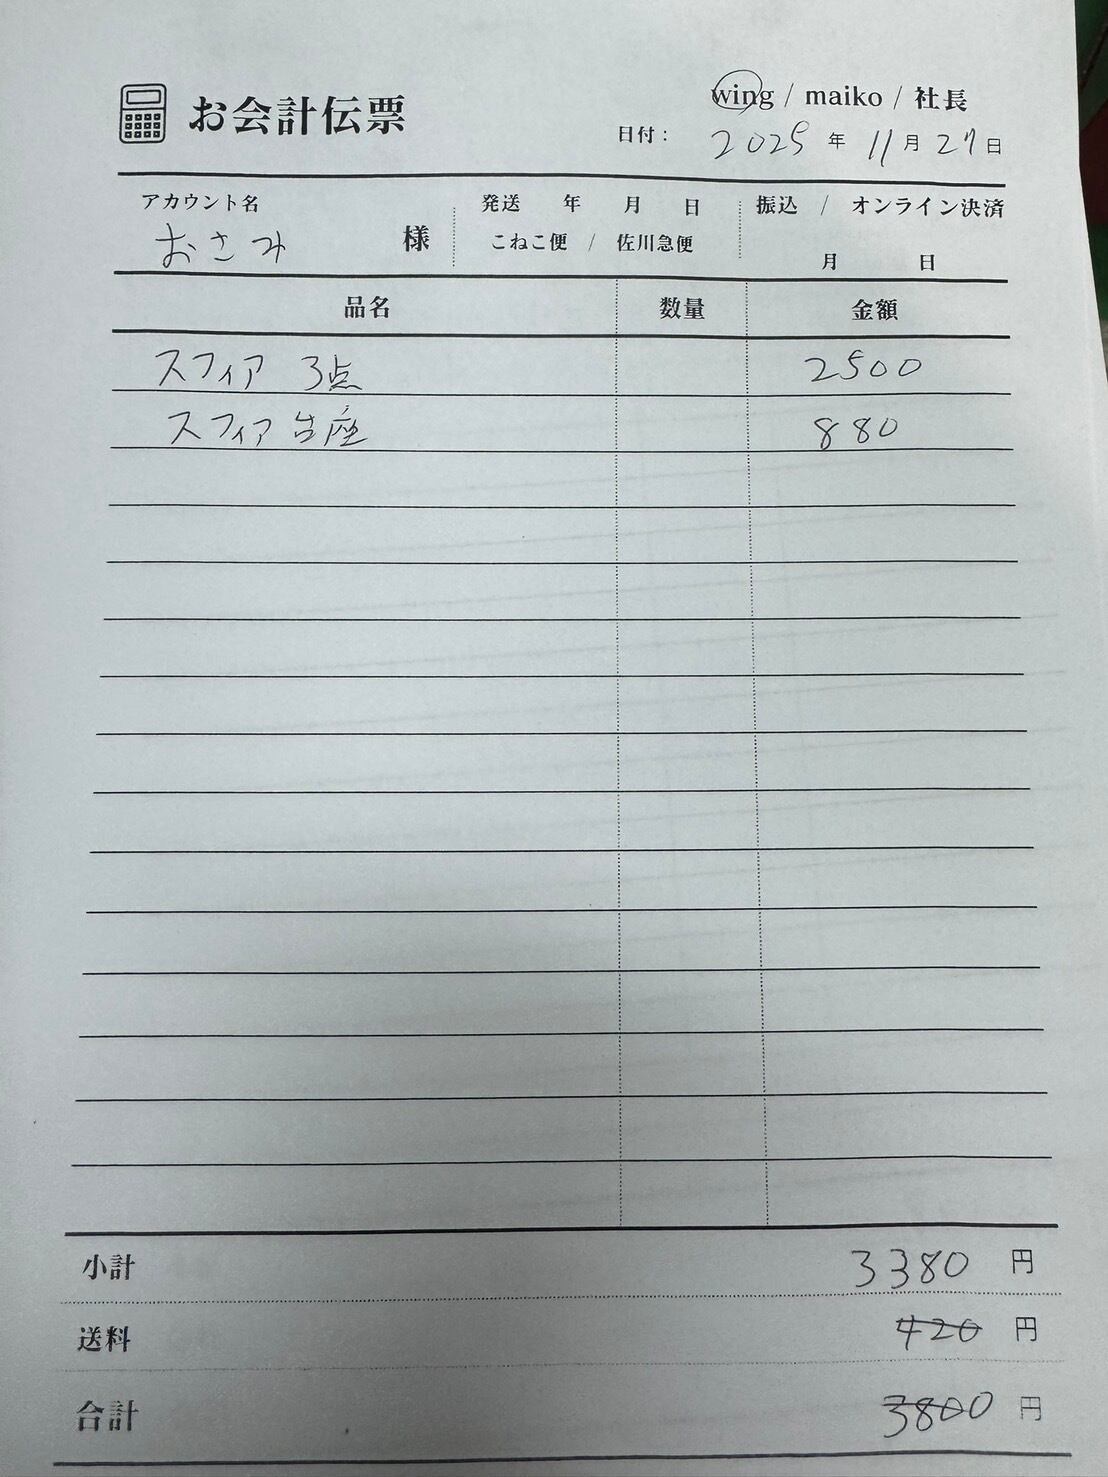 お会計伝票
wing / maiko / 社長
日付： 2025 年 11 月 27 日
アカウント名
おさみ 様
発送 年 月 日
こねこ便 / 佐川急便
振込 / オンライン決済
月 日
品名 数量 金額
スフィア 3点 2500
スフィア 台座 880
小計 3380 円
送料 420 円
合計 3800 円